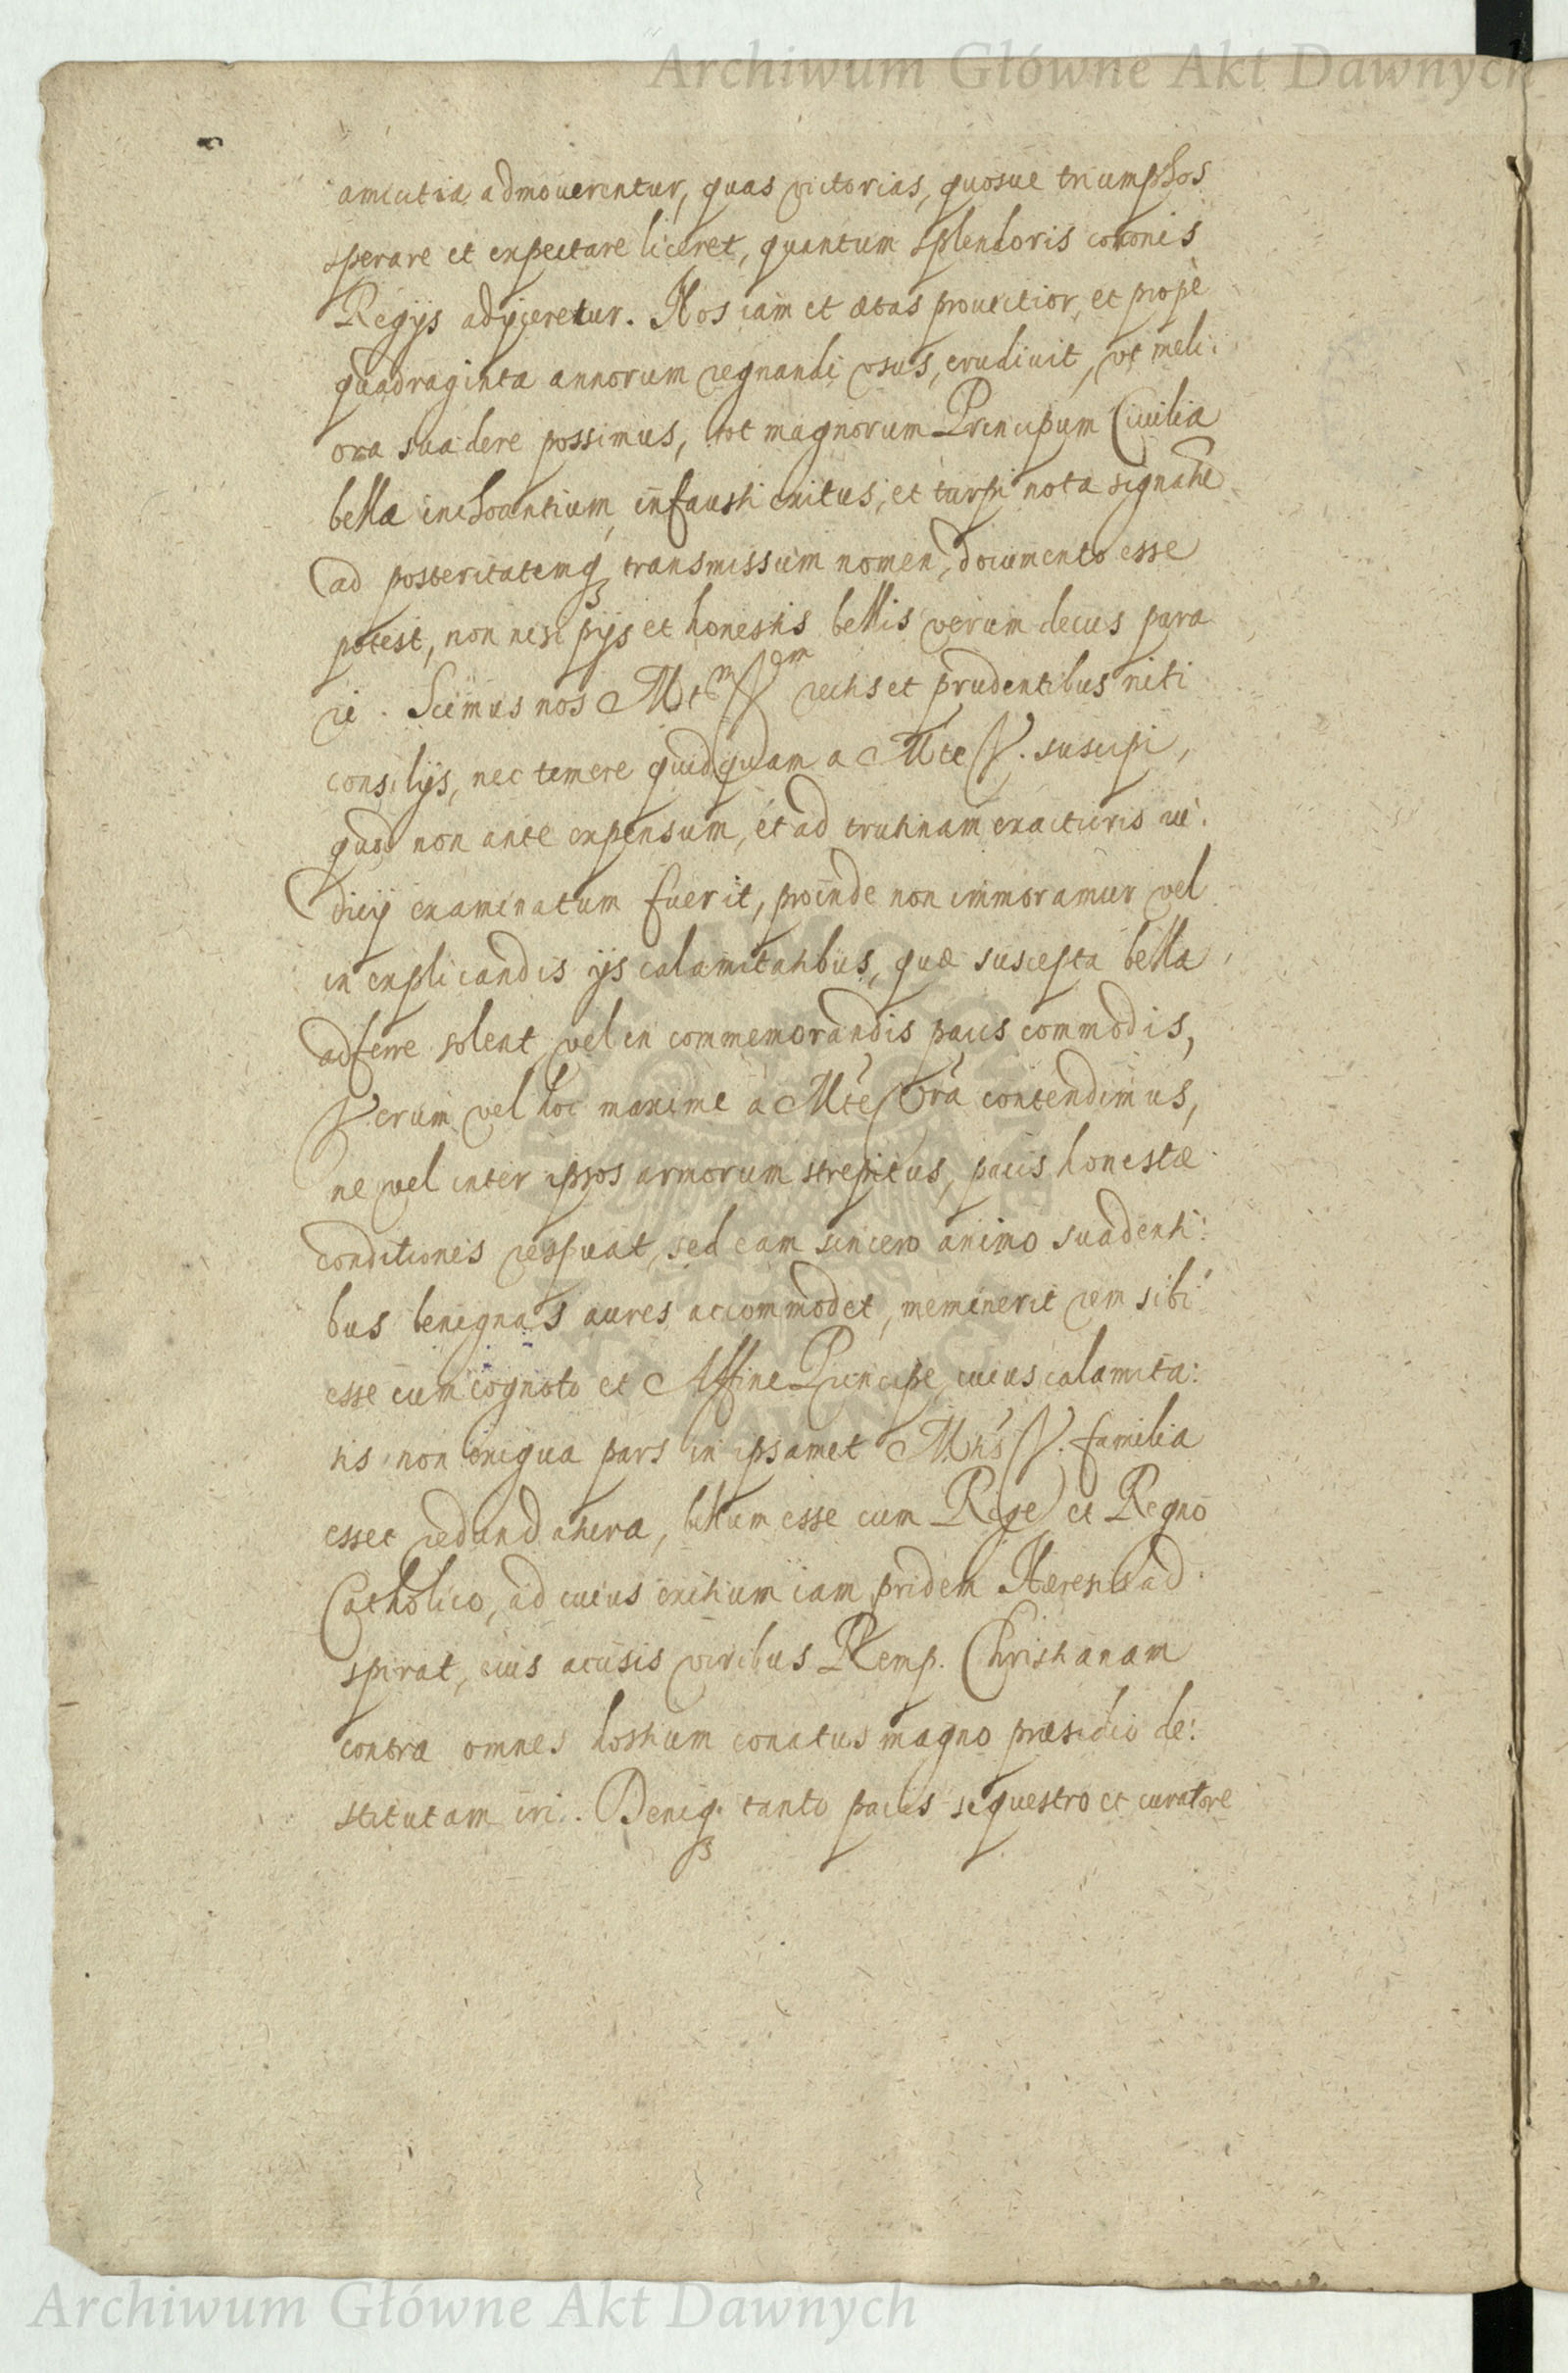 Archiwum Główne Akt Dawnych
amicitia admouerentur, quas victorias, quosue triumphos
sperare et expectare liceret, quantum splendoris coronis
Regÿs adÿceretur. Nos iam et ætas prouectior, et propè
quadraginta annorum regnandi vsus, erudiuit, vt meli:
ora suadere possimus, tot magnorum Principum Ciuilia
bella inchoantium infausti exitus, et turpi nota signatū
ad posteritatemq₃ transmissum nomen, documento esse
potest, non nisi pÿs et honestis bellis verum decus para
ri. Scimus nos Mtem Vram rectis et prudentibus niti
consilÿs, nec temere quidquam a Mte V. suscipi,
quod non ante expensum, et ad trutinam exacturis iu:
dicÿ examinatum fuerit, proinde non immoramur vel
in explicandis ÿs calamitatibus, quæ suscepta bella
adferre solent, vel in commemorandis pacis commodis,
Verum vel hoc maxime à Mte Vra contendimus,
ne vel inter ipsos armorum strepitus, pacis honestæ
conditiones respuat, sed eam sincero animo suadenti:
bus benignas aures accommodet, meminerit rem sibi
esse cum cognato et Affine Principe, cuius calamita:
tis non exigua pars in ipsamet Mtis V. familia
esset redundatura, bellum esse cum Rege et Regno
Catholico, ad cuius exitium iam pridem Hæresis ad
spirat, cuius accisis viribus Remp. Christianam
contra omnes hostium conatus magno præsidio de:
stitutam iri. Deniq₃ tanto pacis sequestro et curatore
Archiwum Główne Akt Dawnych